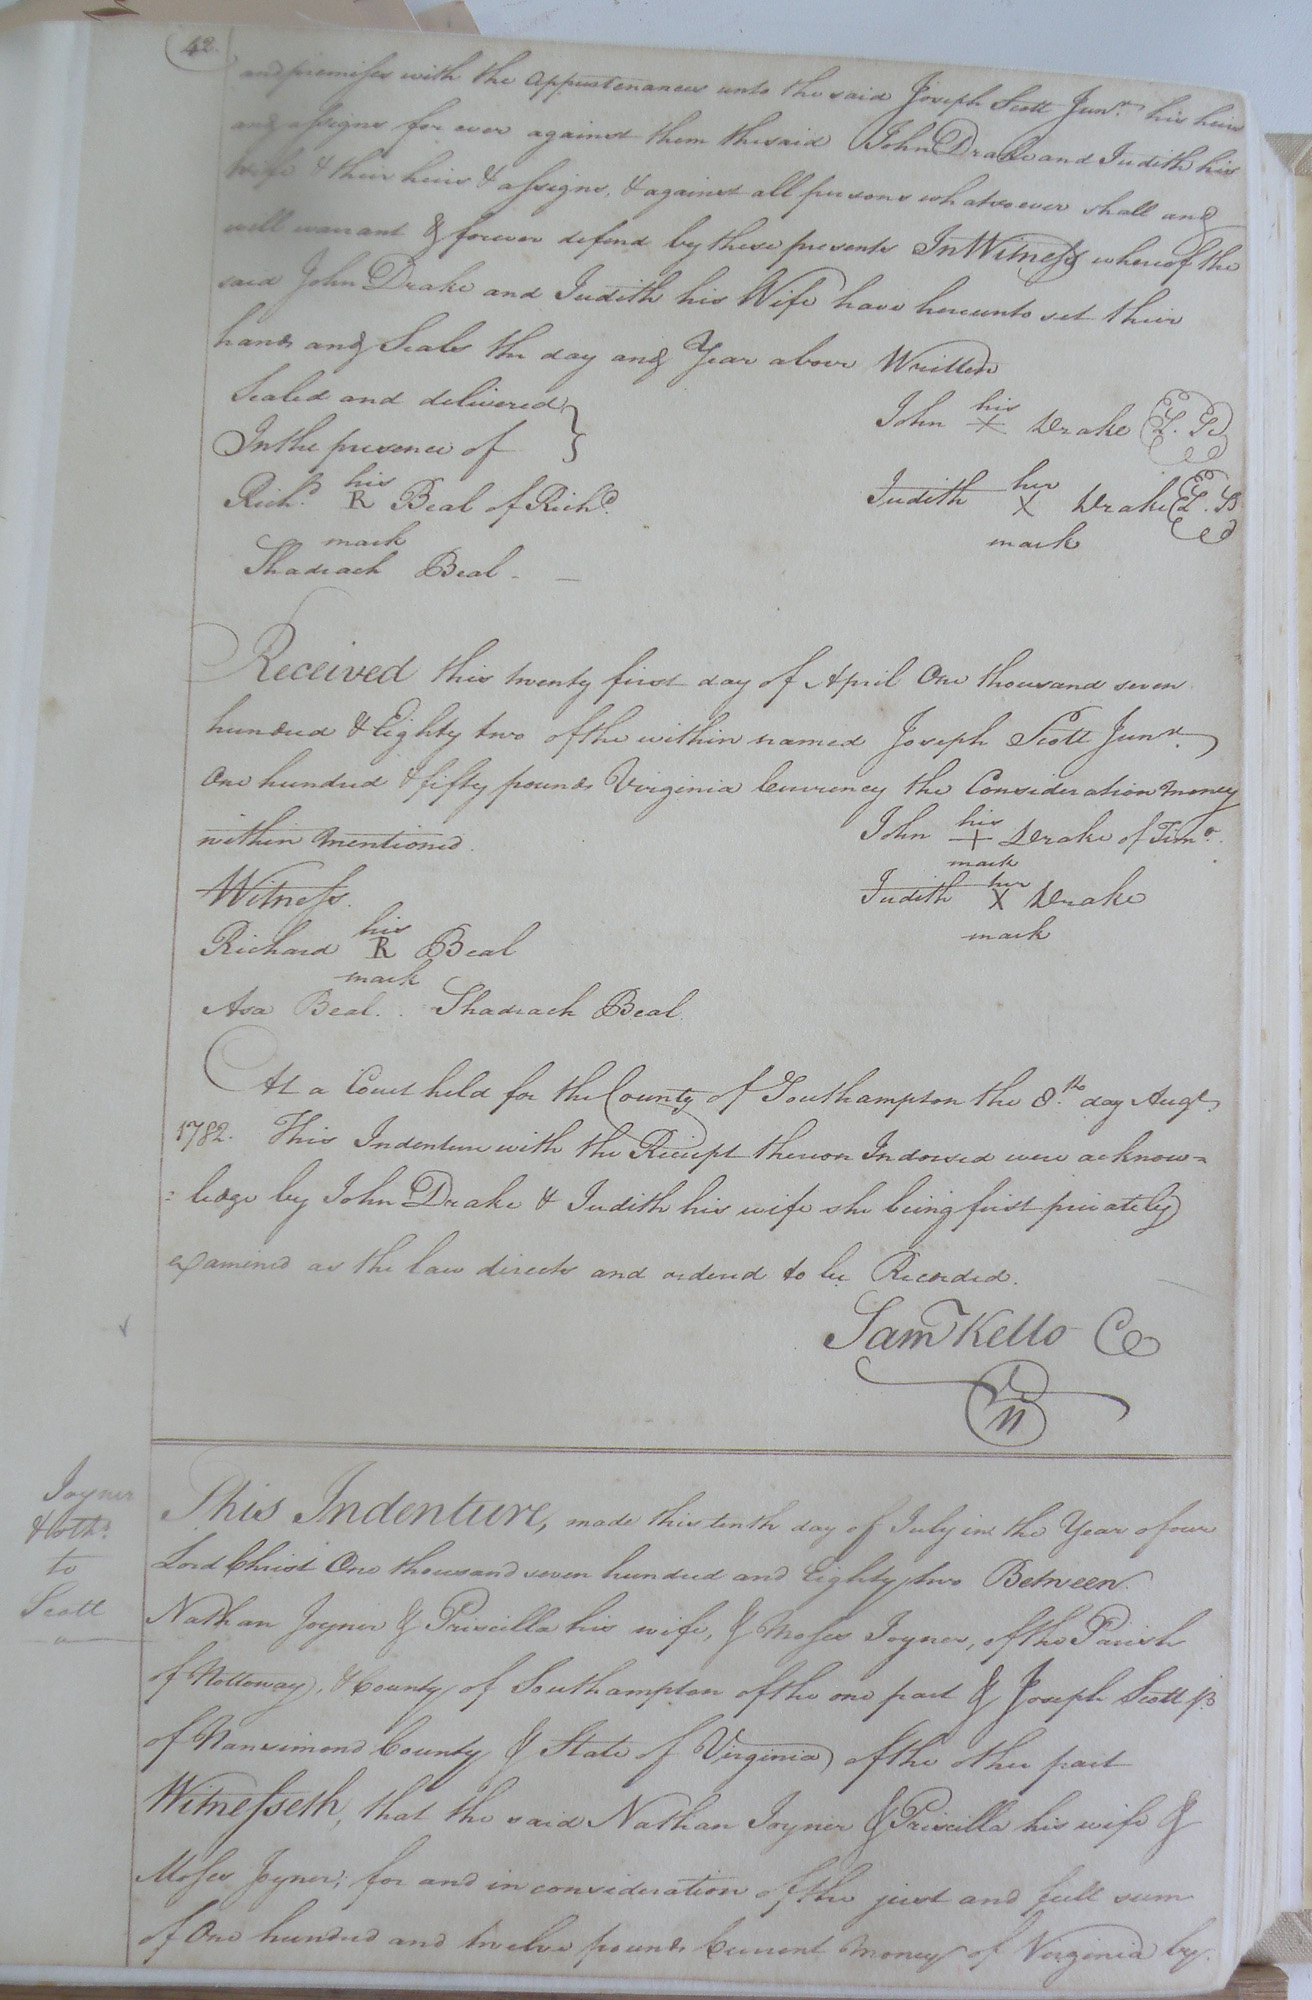 42
and premises with the Appurtenances unto the said Joseph Scott Junr. his heirs
and assigns for ever against them the said John Drake and Judith his
wife & their heirs & assigns, & against all persons whatsoever shall and
will warrant & forever defend by these presents In Witness whereof the
said John Drake and Judith his Wife have hereunto set their
hands and Seals the day and Year above Written
Sealed and delivered }
In the presence of }
John his X Drake (L. S.)
Richd. his R Beal of Richd.
mark
Judith her X Drake (L. S.)
mark
Shadrach Beal - -
Received this twenty first day of April One thousand seven
hundred & Eighty two of the within named Joseph Scott Junr.
One hundred & fifty pounds Virginia Currency the Consideration money
within mentioned.
John his + Drake of Timo.
mark
Witness.
Judith her X Drake
mark
Richard his R Beal
mark
Asa Beal. Shadrach Beal.
At a Court held for the County of Southampton the 8th. day Augt.
1782. This Indenture with the Receipt thereon Indorsed were acknow=
: ledge by John Drake & Judith his wife she being first privately
examined as the law directs and ordered to be Recorded.
Saml Kello CC
Joyner
& oths.
to
Scott
This Indenture, made this tenth day of July in the Year of our
Lord Christ One thousand seven hundred and Eighty two Between
Nathan Joyner & Priscilla his wife, & Moses Joyner, of the Parish
of Nottoway, & County of Southampton of the one part & Joseph Scott jr.
of Nansimond County & State of Virginia of the other part
Witnesseth, that the said Nathan Joyner & Priscilla his wife &
Moses Joyner, for and in consideration of the just and full sum
of One hundred and twelve pounds Current Money of Virginia by